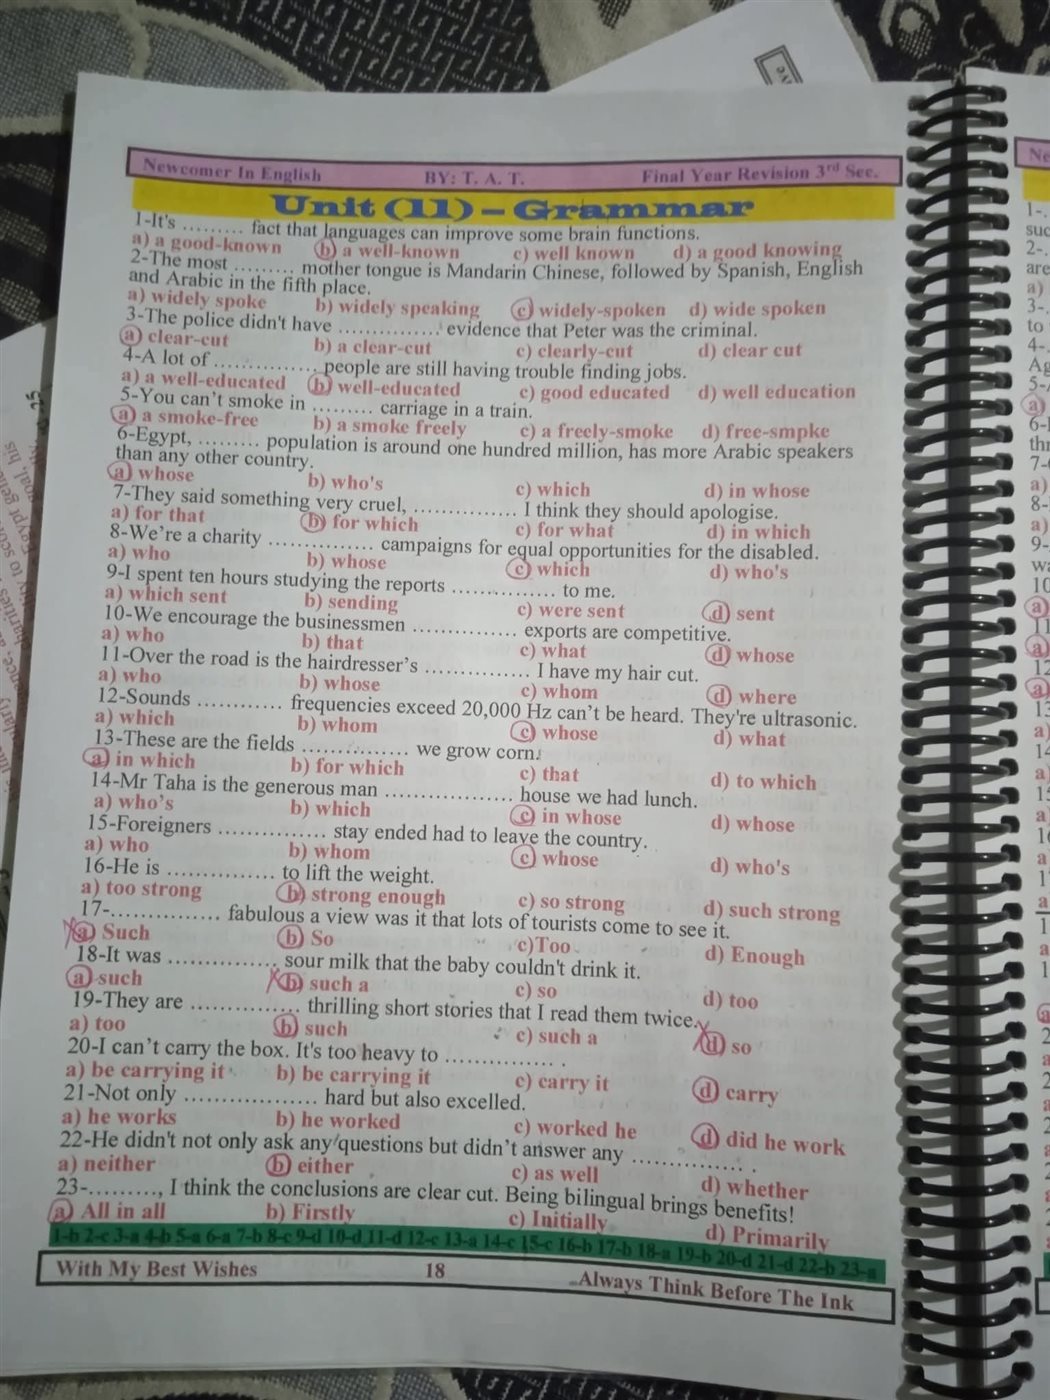 Newcomer In English BY: T. A. T. Final Year Revision 3rd Sec.
Unit (11) – Grammar
1-It's ......... fact that languages can improve some brain functions.
a) a good-known b) a well-known c) well known d) a good knowing
2-The most ......... mother tongue is Mandarin Chinese, followed by Spanish, English
and Arabic in the fifth place.
a) widely spoke b) widely speaking c) widely-spoken d) wide spoken
3-The police didn't have ............... evidence that Peter was the criminal.
a) clear-cut b) a clear-cut c) clearly-cut d) clear cut
4-A lot of ............... people are still having trouble finding jobs.
a) a well-educated b) well-educated c) good educated d) well education
5-You can't smoke in ......... carriage in a train.
a) a smoke-free b) a smoke freely c) a freely-smoke d) free-smpke
6-Egypt, ......... population is around one hundred million, has more Arabic speakers
than any other country.
a) whose b) who's c) which d) in whose
7-They said something very cruel, ............... I think they should apologise.
a) for that b) for which c) for what d) in which
8-We're a charity ............... campaigns for equal opportunities for the disabled.
a) who b) whose c) which d) who's
9-I spent ten hours studying the reports ............... to me.
a) which sent b) sending c) were sent d) sent
10-We encourage the businessmen ............... exports are competitive.
a) who b) that c) what d) whose
11-Over the road is the hairdresser's ............... I have my hair cut.
a) who b) whose c) whom d) where
12-Sounds ............ frequencies exceed 20,000 Hz can't be heard. They're ultrasonic.
a) which b) whom c) whose d) what
13-These are the fields ............... we grow corn.
a) in which b) for which c) that d) to which
14-Mr Taha is the generous man .................. house we had lunch.
a) who's b) which c) in whose d) whose
15-Foreigners ............... stay ended had to leave the country.
a) who b) whom c) whose d) who's
16-He is ............... to lift the weight.
a) too strong b) strong enough c) so strong d) such strong
17-................ fabulous a view was it that lots of tourists come to see it.
a) Such b) So c)Too d) Enough
18-It was ................ sour milk that the baby couldn't drink it.
a) such b) such a c) so d) too
19-They are ................ thrilling short stories that I read them twice.
a) too b) such c) such a d) so
20-I can't carry the box. It's too heavy to ................ .
a) be carrying it b) be carrying it c) carry it d) carry
21-Not only ................... hard but also excelled.
a) he works b) he worked c) worked he d) did he work
22-He didn't not only ask any questions but didn't answer any ................ .
a) neither b) either c) as well d) whether
23-.........., I think the conclusions are clear cut. Being bilingual brings benefits!
a) All in all b) Firstly c) Initially d) Primarily
1-b 2-c 3-a 4-b 5-a 6-a 7-b 8-c 9-d 10-d 11-d 12-c 13-a 14-c 15-c 16-b 17-b 18-a 19-b 20-d 21-d 22-b 23-a
With My Best Wishes 18 Always Think Before The Ink